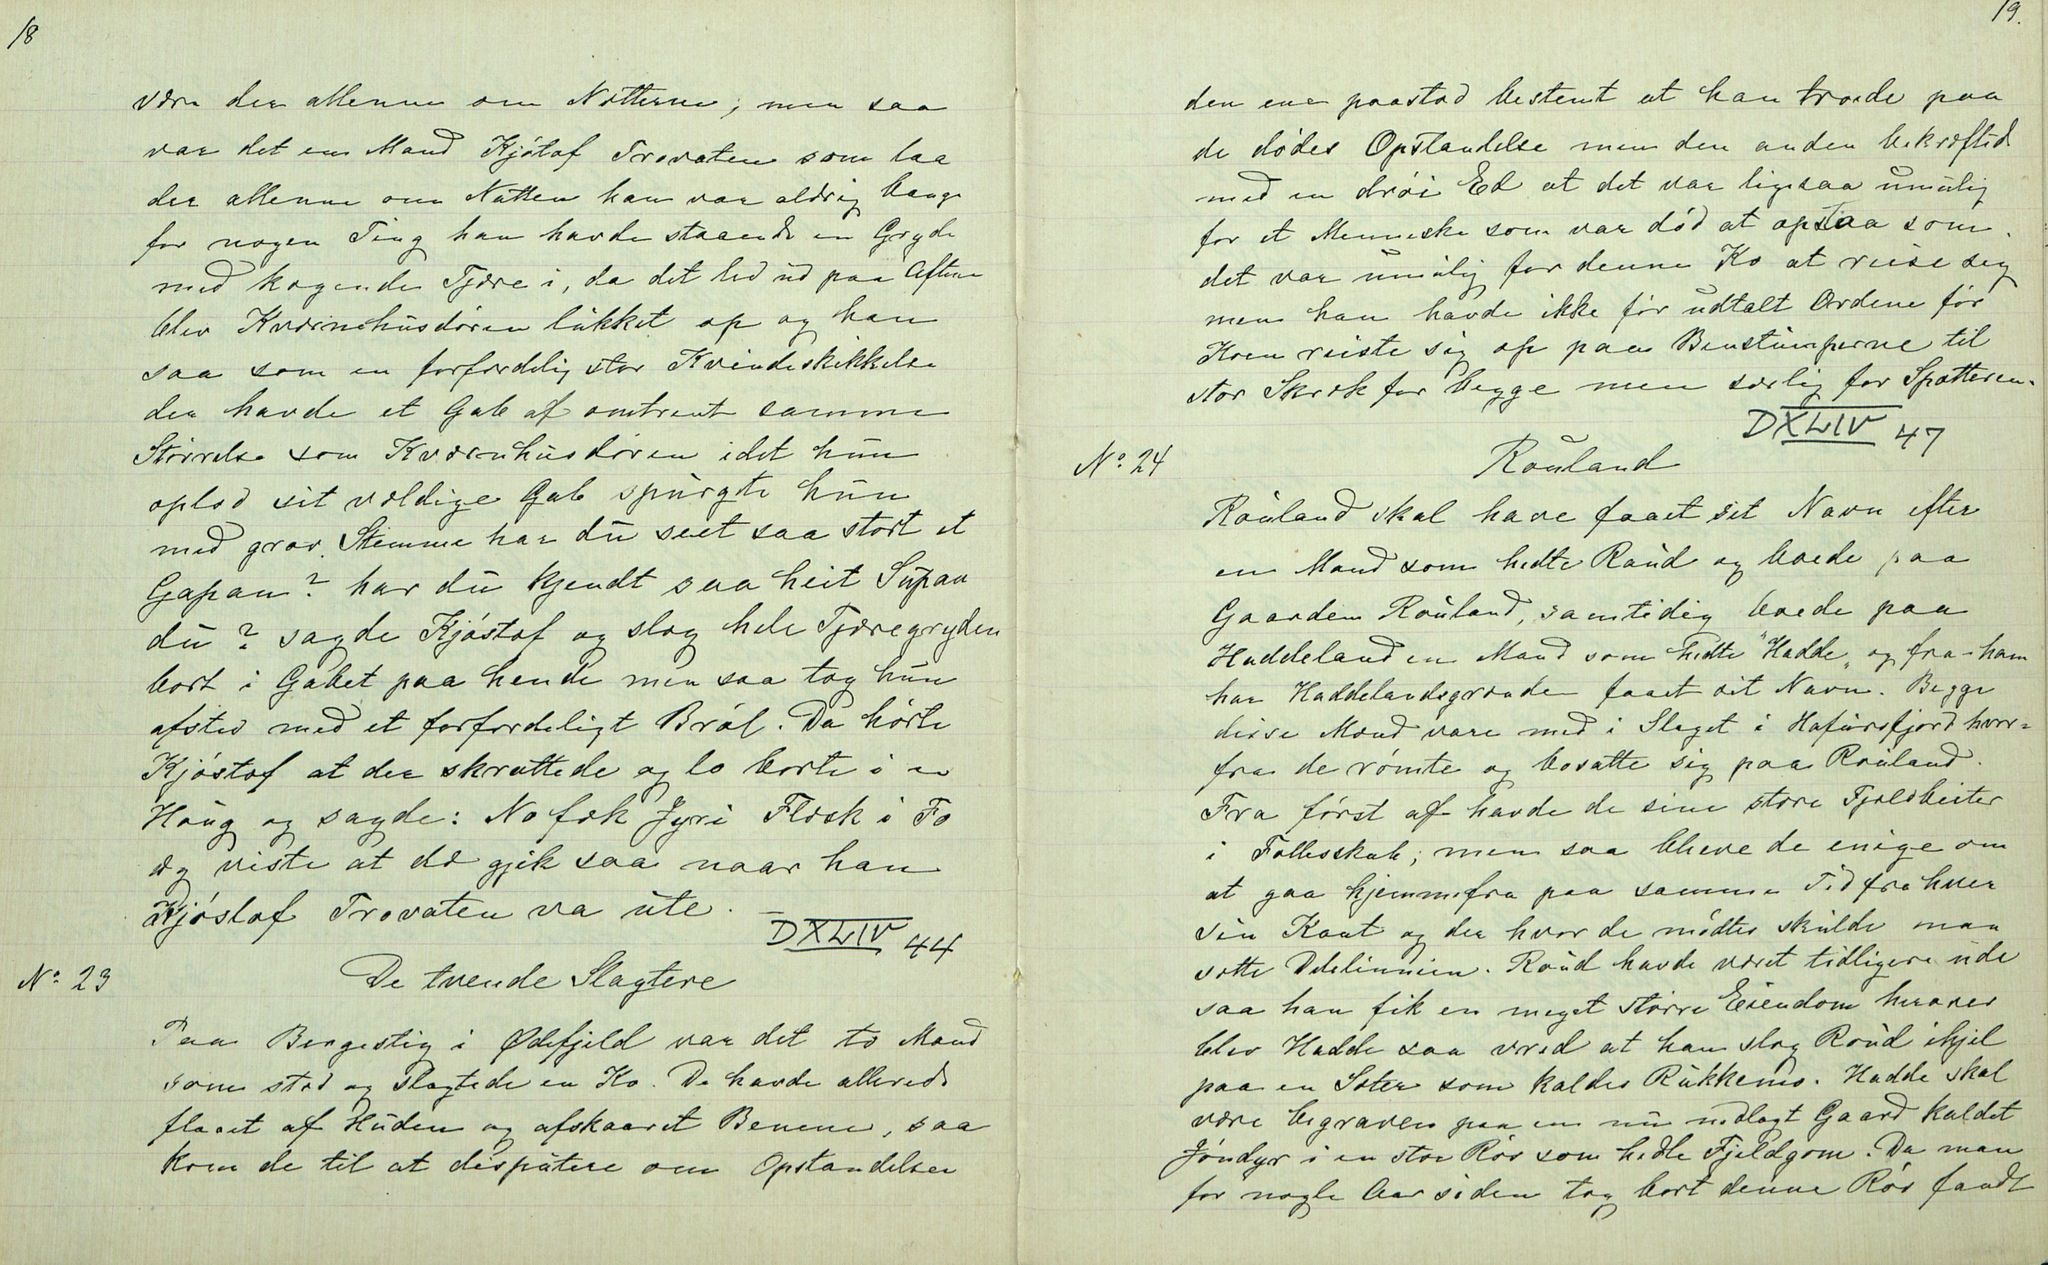 18
være der allenne om Nætterne; men saa
var det en Mand Kjøstof Trovaten som laa
der allenne om Natten han var aldrig bange
for nogen Ting han havde staaende en Gryde
med kogende Tjære i, da det led ud paa Aftene
blev Kværnehusdøren lukket op og han
saa som en forfærdelig stor Kvindeskikkelse
der havde et Gab af omtrent samme
Størrelse som Kværnhusdøren idet hun
oplod sit vældige Gab spurgte hun
med grov Stemme har du seet saa stort et
Gapan? har du kjendt saa heit Supan
du? sagde Kjøstof og slog hele Tjæregryden
bort i Gabet paa hende men saa tog hun
afsted med et forfærdeligt Brøl. Da hørte
Kjøstof at der skrattede og lo borte i en
Houg og sagde: No fæk Jyri Flæsk i Fo
æg viste at dæ gjik saa naar han
Kjøstof Trovaten va ute.
DXLIV 44
No. 23
De tvende Slagtere
Paa Bergestig i Ødefjeld var det to Mænd
som stod og slagtede en Ko. De havde allerede
flaaet af Huden og afskaaret Benene, saa
kom de til at disputere om Opstandelsen
19.
den ene paastod bestemt at han troede paa
de dødes Opstandelse men den anden bekræftede
med en drøi Ed at det var ligesaa umulig
for et Menneske som var død at opstaa som
det var umulig for denne Ko at reise sig
men han havde ikke før udtalt Ordene før
Koen reiste sig op paa Benstumperne til
stor Skræk for begge men særlig for Spotteren.
DXLIV 47
No. 24
Rouland
Rouland skal have faaet sit Navn efter
en Mand som hedte Roud og boede paa
Gaarden Rouland, samtidig boede paa
Haddeland en Mand som hedte "Hadde" og fra ham
har Haddelandsgrænden faaet sit Navn. Begge
disse Mænd vare med i Slaget i Hafursfjord hvor-
fra de rømte og bosatte sig paa Rouland.
Fra først af havde de sine store Fjeldbeiter
i Fællesskab; men saa bleve de enige om
at gaa hjemmefra paa samme Tid fra hver
sin Kant og der hvor de mødtes skulde man
sætte Delelinnien. Roud havde været tidligere ude
saa han fik en meget større Eiendom herover
blev Hadde saa vred at han slog Roud ihjel
paa en Sæter som kaldes Rukkemo. Hadde skal
være begraven paa en nu nedlagt Gaard kaldet
Jøndyr i en stor Røs som hedte Fjeldgom. Da man
for nogle Aar siden tog bort denne Røs fandt